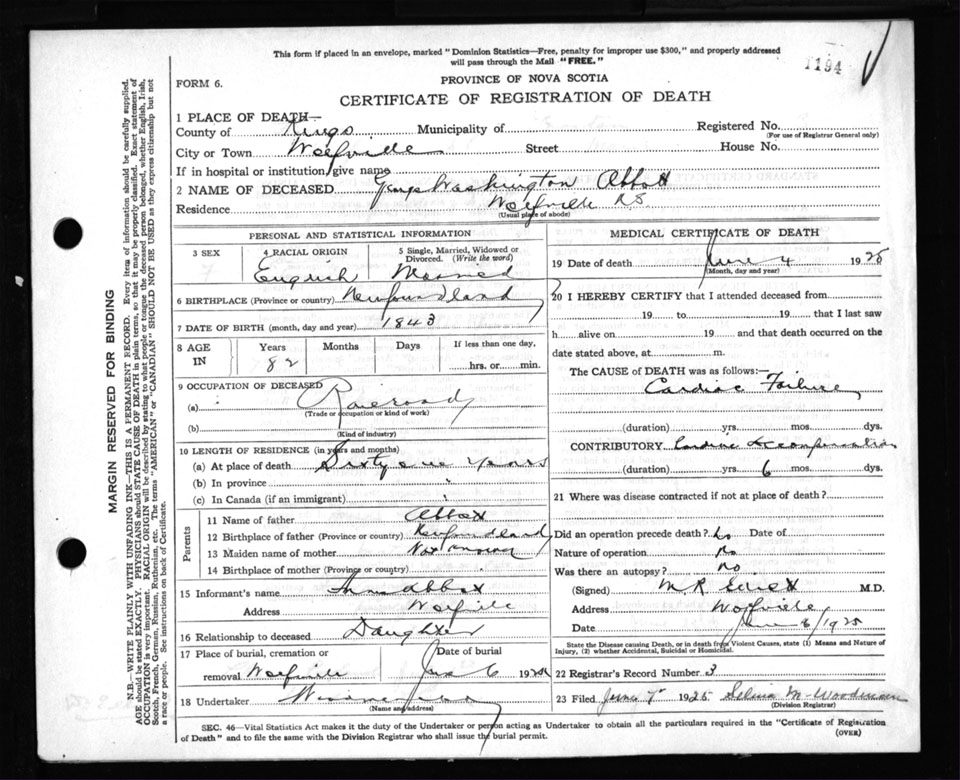 This form if placed in an envelope, marked "Dominion Statistics—Free, penalty for improper use $300," and properly addressed
will pass through the Mail "FREE."
1194
FORM 6.
PROVINCE OF NOVA SCOTIA
CERTIFICATE OF REGISTRATION OF DEATH
1 PLACE OF DEATH—
County of Kings Municipality of Registered No.
(For use of Registrar General only)
City or Town Wolfville Street House No.
If in hospital or institution, give name
2 NAME OF DECEASED Washington Abbott
Residence Wolfville N S
(Usual place of abode)
PERSONAL AND STATISTICAL INFORMATION
3 SEX 4 RACIAL ORIGIN 5 Single, Married, Widowed or Divorced. (Write the word)
English Married
6 BIRTHPLACE (Province or country) Newfoundland
7 DATE OF BIRTH (month, day and year) 1843
8 AGE IN Years Months Days If less than one day,
82 hrs. or min.
9 OCCUPATION OF DECEASED
(a) Railroad
(Trade or occupation or kind of work)
(b)
(Kind of industry)
10 LENGTH OF RESIDENCE (in years and months)
(a) At place of death Sixty one years
(b) In province "
(c) In Canada (if an immigrant)
Parents
11 Name of father Abbott
12 Birthplace of father (Province or country) Newfoundland
13 Maiden name of mother Not known
14 Birthplace of mother (Province or country)
15 Informant's name Abbott
Address Wolfville
16 Relationship to deceased Daughter
17 Place of burial, cremation or Date of burial
removal Wolfville June 6 192
18 Undertaker
(Name and address)
MEDICAL CERTIFICATE OF DEATH
19 Date of death June 4 1925
(Month, day and year)
20 I HEREBY CERTIFY that I attended deceased from
19 to 19 that I last saw
h alive on 19 and that death occurred on the
date stated above, at m.
The CAUSE of DEATH was as follows:—
Cardiac Failure
(duration) yrs. mos. dys.
CONTRIBUTORY Cardiac Decompensation
(duration) yrs. 6 mos. dys.
21 Where was disease contracted if not at place of death?
Did an operation precede death? No Date of
Nature of operation No
Was there an autopsy? No
(Signed) M R M.D.
Address Wolfville
Date June 6 1925
State the Disease causing Death, or in death from Violent Causes, state (1) Means and Nature of Injury, (2) whether Accidental, Suicidal or Homicidal.
22 Registrar's Record Number 3
23 Filed June 7 1925 M. Woodman
(Division Registrar)
SEC. 46—Vital Statistics Act makes it the duty of the Undertaker or person acting as Undertaker to obtain all the particulars required in the "Certificate of Registration
of Death" and to file the same with the Division Registrar who shall issue the burial permit.
(OVER)
MARGIN RESERVED FOR BINDING
N.B.—WRITE PLAINLY WITH UNFADING INK—THIS IS A PERMANENT RECORD. Every item of information should be carefully supplied.
AGE should be stated EXACTLY. PHYSICIANS should STATE CAUSE OF DEATH in plain terms, so that it may be properly classified. Exact statement of
OCCUPATION is very important. RACIAL ORIGIN will be described by stating to what people or tongue the deceased person belonged, whether English, Irish,
Scotch, French, German, Russian, Ruthenian, etc. The terms "AMERICAN" or "CANADIAN" SHOULD NOT BE USED as they express citizenship but not
a race or people. See instructions on back of Certificate.